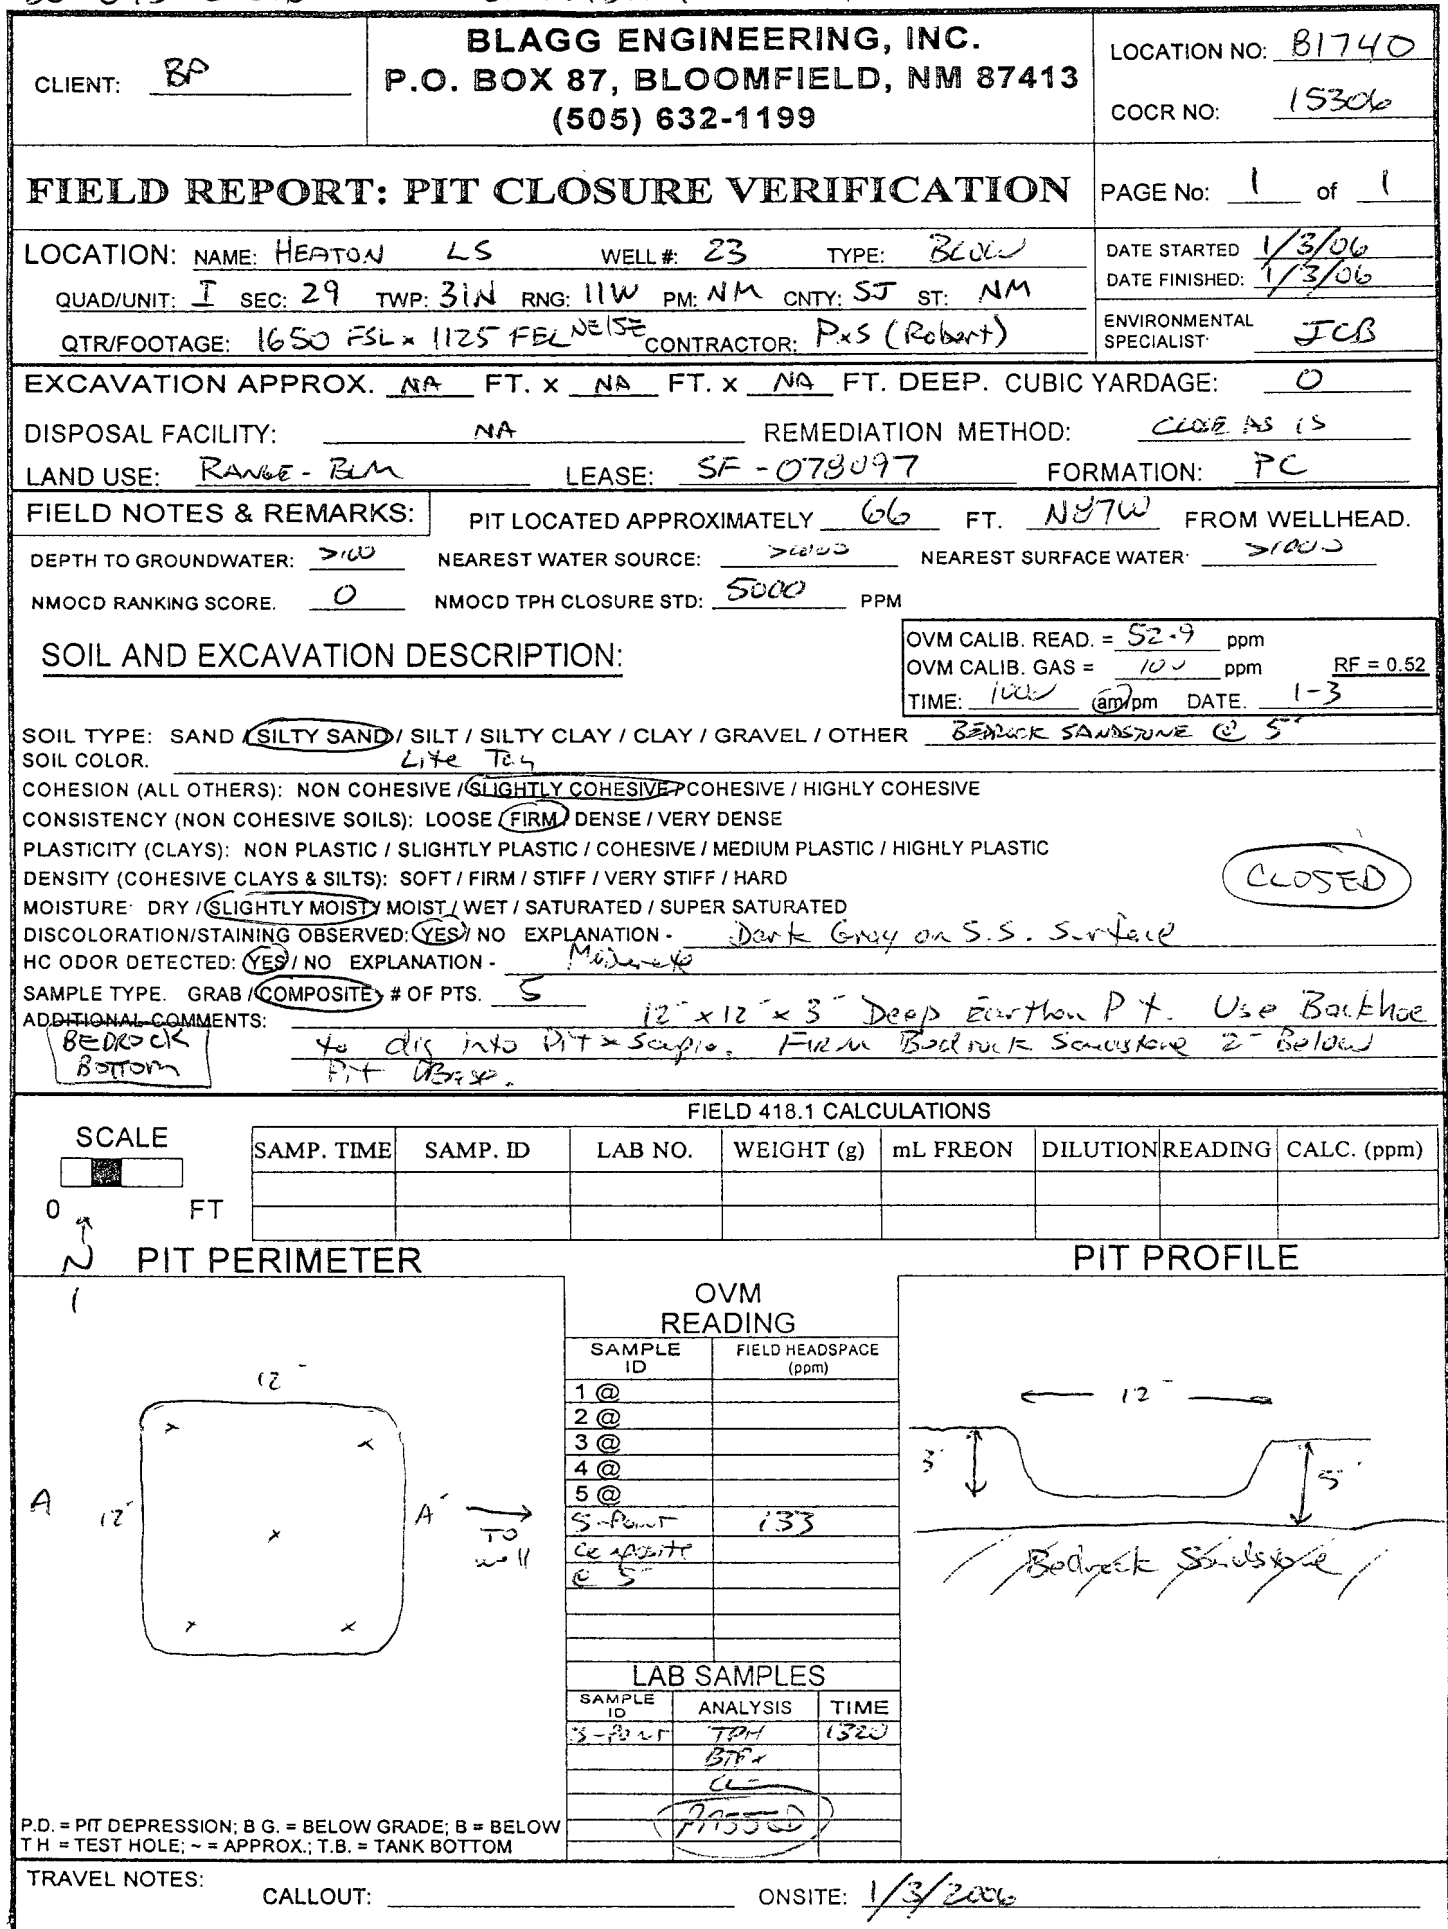 BLAGG ENGINEERING, INC.
P.O. BOX 87, BLOOMFIELD, NM 87413
(505) 632-1199
CLIENT: BP
LOCATION NO: B1740
COCR NO: 15306
FIELD REPORT: PIT CLOSURE VERIFICATION
PAGE No: 1 of 1
LOCATION: NAME: HEATON LS WELL #: 23 TYPE: BLOW
QUAD/UNIT: I SEC: 29 TWP: 31N RNG: 11W PM: NM CNTY: SJ ST: NM
QTR/FOOTAGE: 1650 FSL x 1125 FEL NE/SE CONTRACTOR: PxS (Robert)
DATE STARTED 1/3/06
DATE FINISHED: 1/3/06
ENVIRONMENTAL
SPECIALIST: JCB
EXCAVATION APPROX. NA FT. x NA FT. x NA FT. DEEP. CUBIC YARDAGE: 0
DISPOSAL FACILITY: NA REMEDIATION METHOD: CLOSE AS IS
LAND USE: RANGE - BLM LEASE: SF - 078097 FORMATION: PC
FIELD NOTES & REMARKS: PIT LOCATED APPROXIMATELY 66 FT. N87W FROM WELLHEAD.
DEPTH TO GROUNDWATER: >100 NEAREST WATER SOURCE: >1000 NEAREST SURFACE WATER: >1000
NMOCD RANKING SCORE. 0 NMOCD TPH CLOSURE STD: 5000 PPM
SOIL AND EXCAVATION DESCRIPTION:
OVM CALIB. READ. = 52.9 ppm
OVM CALIB. GAS = 100 ppm RF = 0.52
TIME: 1000 am/pm DATE. 1-3
SOIL TYPE: SAND / SILTY SAND / SILT / SILTY CLAY / CLAY / GRAVEL / OTHER BEDROCK SANDSTONE @ 5'
SOIL COLOR. Lite Tan
COHESION (ALL OTHERS): NON COHESIVE / SLIGHTLY COHESIVE / COHESIVE / HIGHLY COHESIVE
CONSISTENCY (NON COHESIVE SOILS): LOOSE / FIRM / DENSE / VERY DENSE
PLASTICITY (CLAYS): NON PLASTIC / SLIGHTLY PLASTIC / COHESIVE / MEDIUM PLASTIC / HIGHLY PLASTIC
DENSITY (COHESIVE CLAYS & SILTS): SOFT / FIRM / STIFF / VERY STIFF / HARD
CLOSED
MOISTURE: DRY / SLIGHTLY MOIST / MOIST / WET / SATURATED / SUPER SATURATED
DISCOLORATION/STAINING OBSERVED: YES / NO EXPLANATION - Dark Gray on S.S. Surface
HC ODOR DETECTED: YES / NO EXPLANATION - Moderate
SAMPLE TYPE. GRAB / COMPOSITE # OF PTS. 5
ADDITIONAL COMMENTS: 12' x 12' x 3' Deep Earthen Pit. Use Backhoe
to dig into Pit & Sample. FIRM Bedrock Sandstone 2' Below
Pit Base.
BEDROCK
BOTTOM
FIELD 418.1 CALCULATIONS
SCALE
0 FT
SAMP. TIME SAMP. ID LAB NO. WEIGHT (g) mL FREON DILUTION READING CALC. (ppm)
N
PIT PERIMETER
PIT PROFILE
OVM
READING
SAMPLE
ID
FIELD HEADSPACE
(ppm)
1 @
2 @
3 @
4 @
5 @
5-Point 133
Composite
@ 5'
12'
A 12' A' TO
well
12'
3' 5'
Bedrock Sandstone
LAB SAMPLES
SAMPLE
ID
ANALYSIS TIME
5-Point TPH 1320
BTEX
Cl-
PASSED
P.D. = PIT DEPRESSION; B G. = BELOW GRADE; B = BELOW
T H = TEST HOLE; ~ = APPROX.; T.B. = TANK BOTTOM
TRAVEL NOTES:
CALLOUT: ONSITE: 1/3/2006